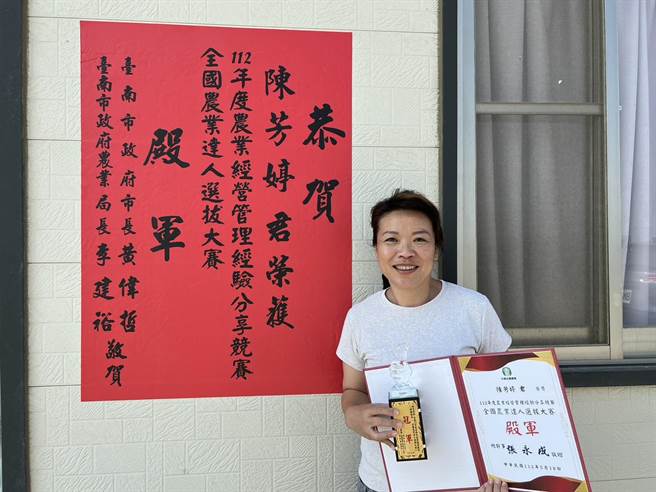 恭賀
陳芳婷君榮獲
112年度農業經營管理經驗分享競賽
全國農業達人選拔大賽
殿軍
臺南市政府市長黃偉哲
臺南市政府農業局長李建裕
敬賀
陳芳婷 君
全國農業達人選拔大賽
殿軍
張永成